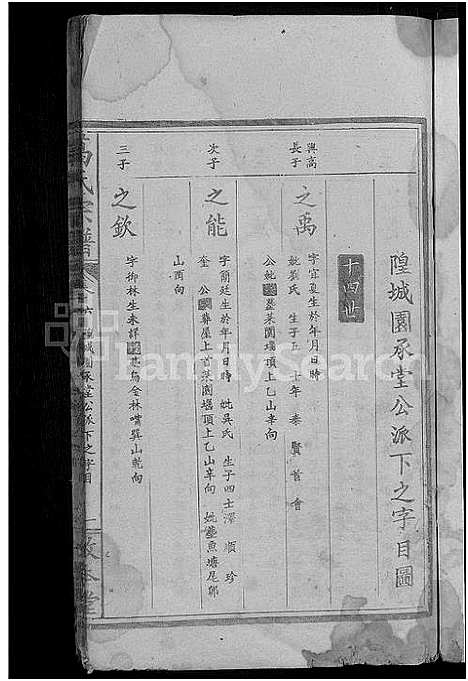 隍城園承堂公派下之字目圖
十四世
興高
長子
之禹
字宜夏生於年月日時
妣劉氏 生子五 十年 泰 賢 首 會
公妣葬菜園堪頂上乙山辛向
次子
之能
字簡廷生於年月日時 妣吳氏 生子四士澤 順 珍
奎 公葬屋上首菜園堪頂上乙山辛向 妣葬魚塘尾鄒
山酉向
三子
之欽
字御林生未詳葬烏金林嘴巽山乾向
萬氏宗譜
隍城園承堂公派下之字目
敬本堂
FamilySearch